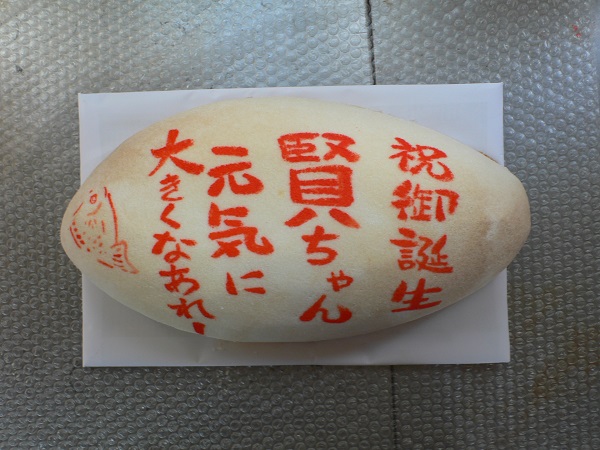 祝御誕生
賢ちゃん
元気に
大きくなあれ!